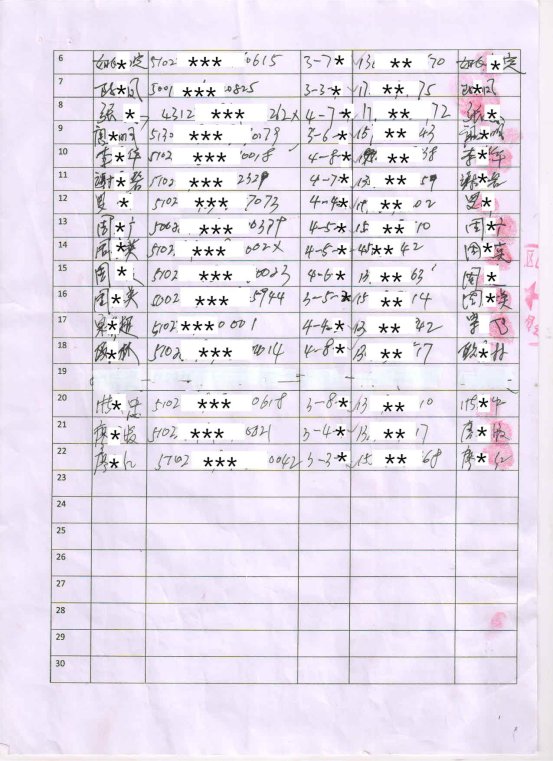 6 姚*定 5102 *** 0615 3-7* 13. ** 70 姚*定
7 *凤 5001 *** 0825 3-3* 17. ** 75 *凤
8 张* 4312 *** 262X 4-7* 17. ** 72 张*
9 周*明 5130 *** 0079 3-6* 15. ** 43 *明
10 李*华 5102 *** 0018 4-8* ** 38 李*华
11 谢*碧 5102 *** 2329 4-7* 13. ** 59 谢*碧
12 * 5102 *** 7073 4-4* ** 02 *
13 周*广 5002 *** 0379 4-5* 15 ** 10 周*广
14 周*英 5102 *** 002X 4-5-* ** 42 周*英
15 周* 5102 *** 0023 4-6* 13. ** 63 周*
16 周*英 5002 *** 5944 3-5-* 15 ** 14 周*英
17 *超 5102 *** 0001 4-4-* 13 ** 42
18 *林 5102 *** 4-8* 13. ** 77 *林
19
20 *忠 5102 *** 0618 3-8* 13 ** 10 *忠
21 廖*俊 5102 *** 0021 3-4* 13. ** 17 廖*俊
22 廖*仁 5102 *** 0042 3-3* 15. ** 68 廖*仁
23
24
25
26
27
28
29
30